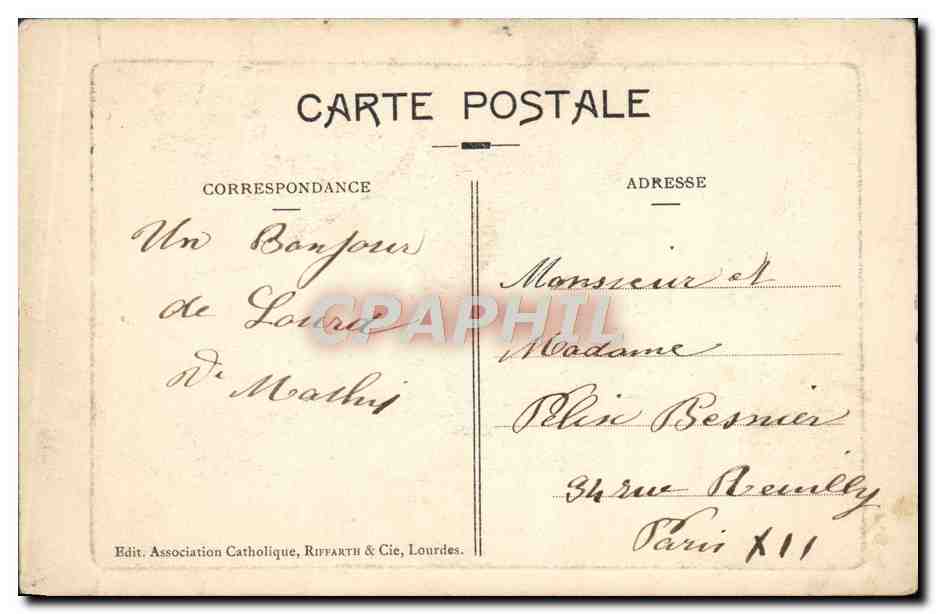 CARTE POSTALE
CORRESPONDANCE
Un Bonjour
de Lourd
De Mathis
ADRESSE
Monsieur et
Madame
Félix Besnier
34 rue Reuilly
Paris XII
Edit. Association Catholique, RIFFARTH & Cie, Lourdes.
CPAPHIL